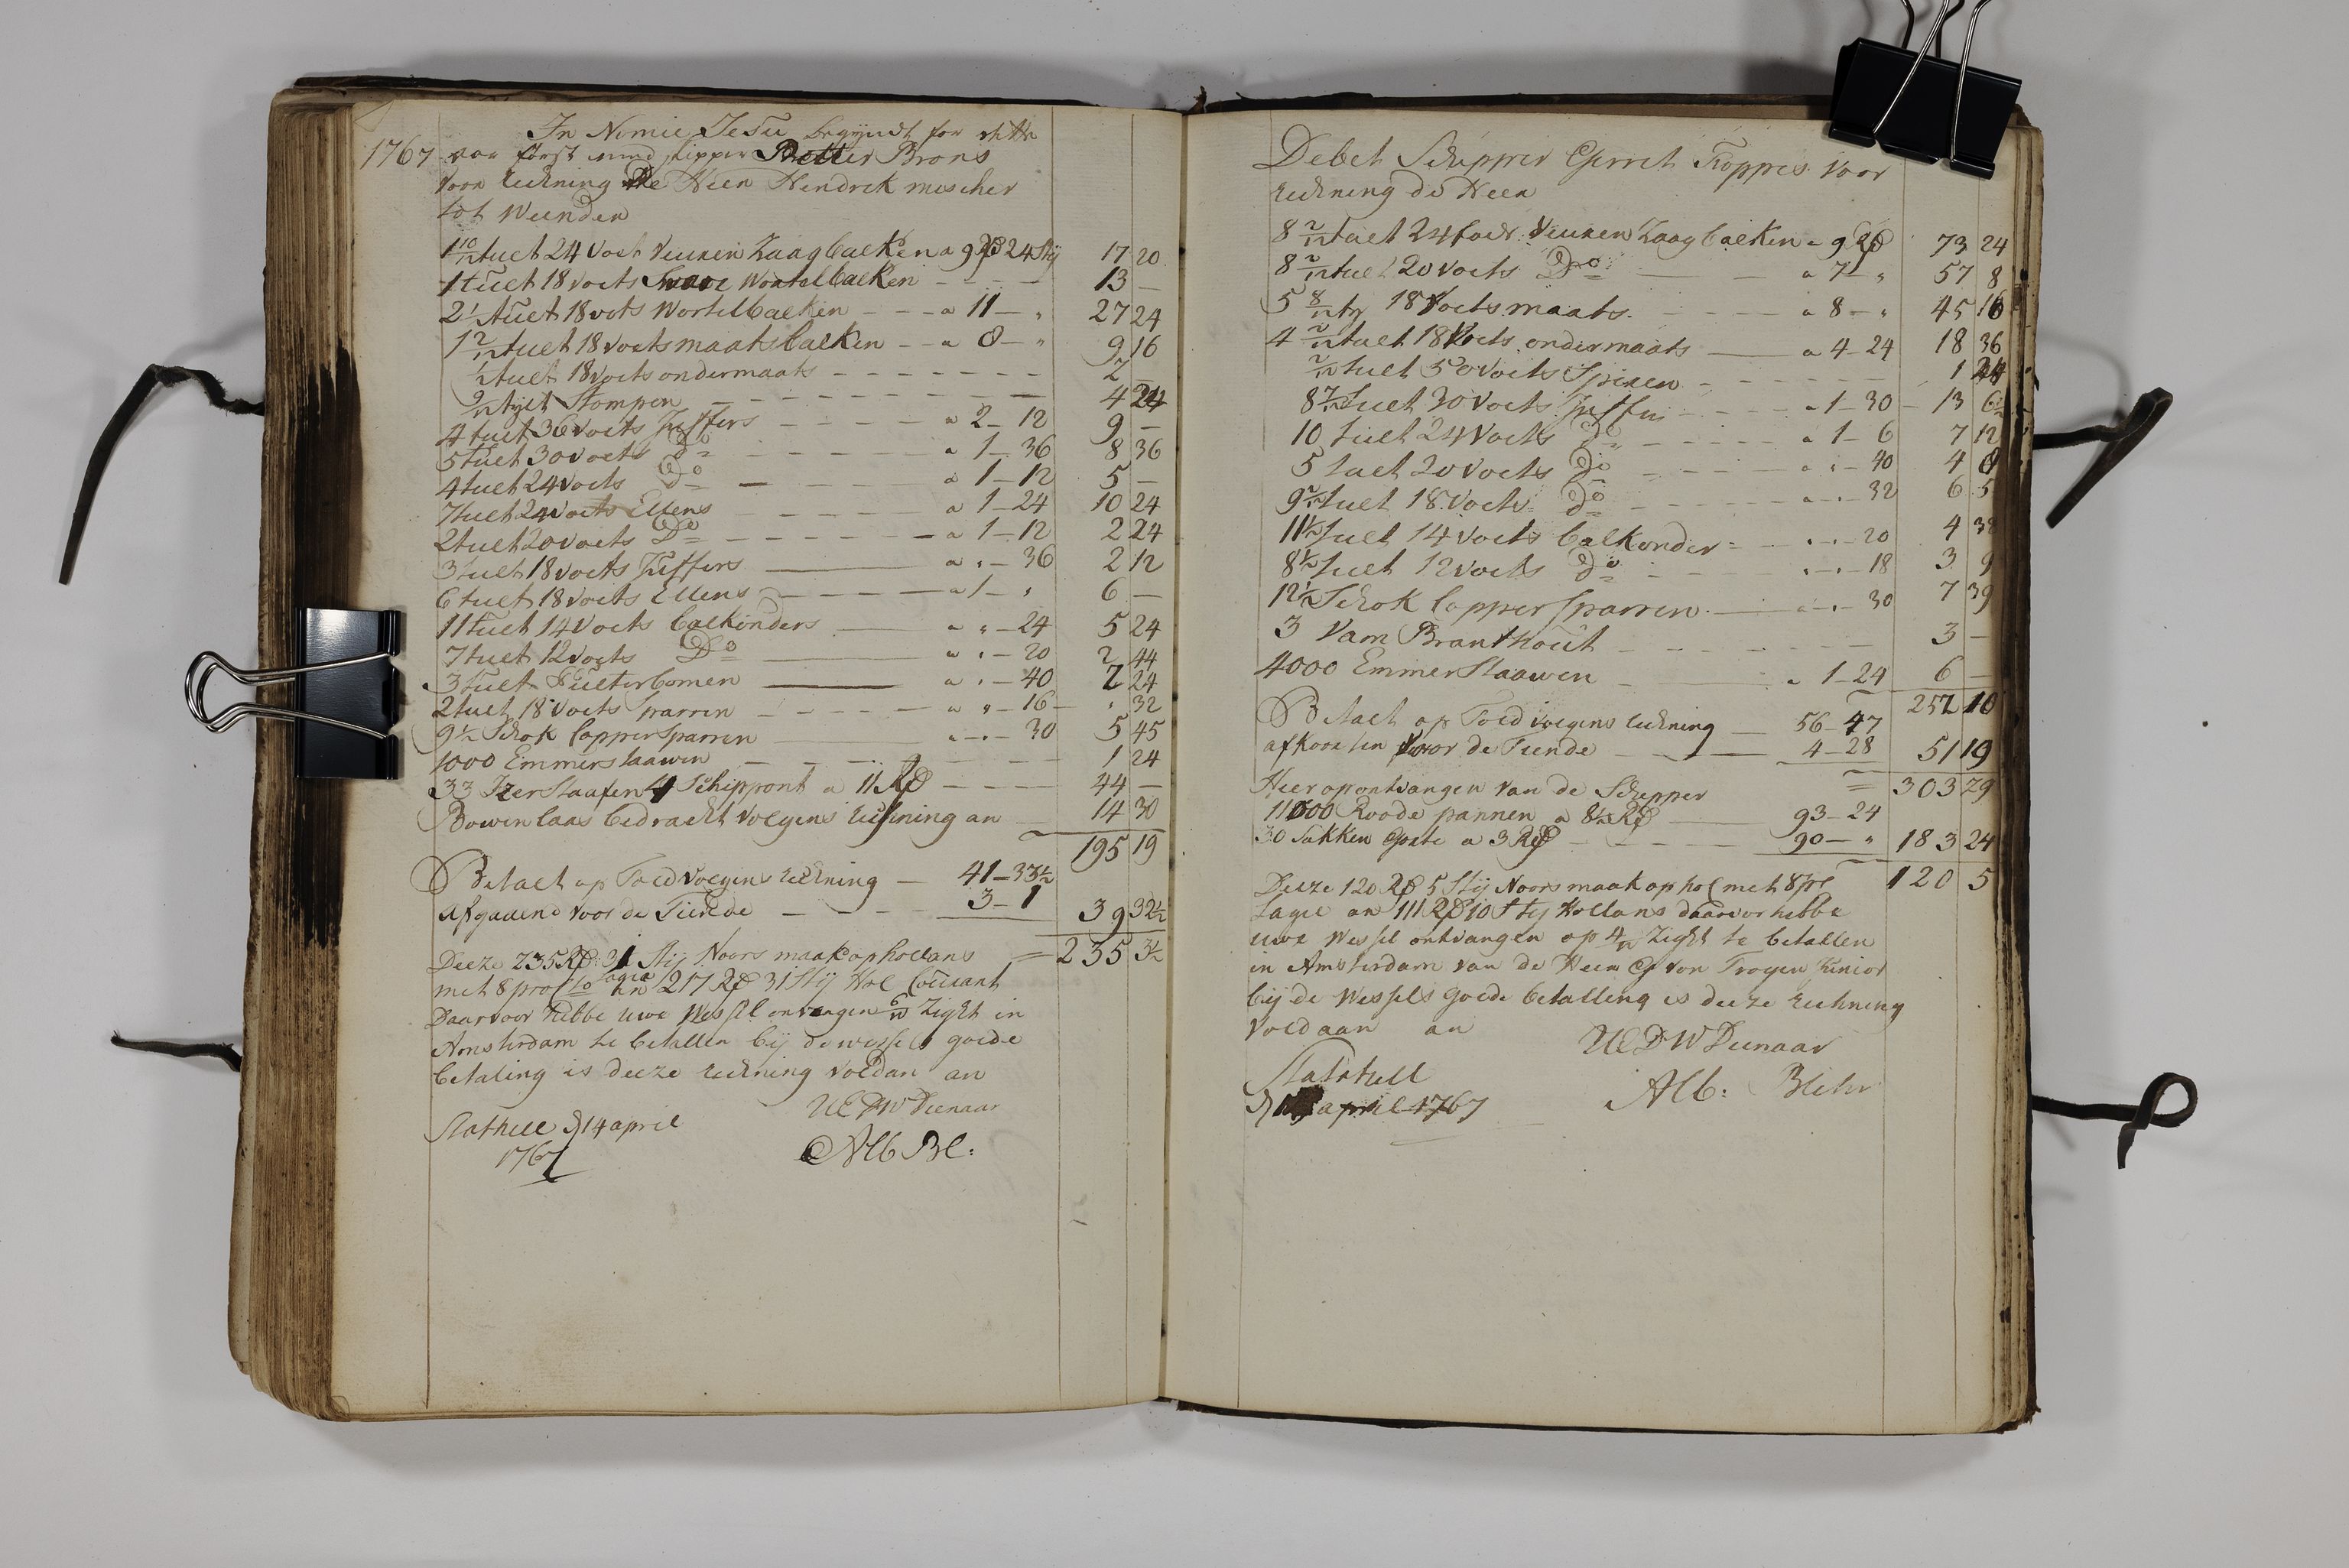 In Nomie Jesu begijndt for dette
1767 aar først med skipper Brons
voor reekning de Heer Hendrik mescher
tot Weenden
1 10/12 tuelt 24 Voet Veuren Zaagbalken a 9 Rd 24 Stij 17 20
1 tuelt 18 voets Swaar Wortelbalken 13 —
2 1/2 tuelt 18 vots Wortelbalken a 11 — " 27 24
1 2/12 tuelt 18 voets maatsbalken a 8 — " 9 16
1/2 tuelt 18 voets ondermaats 2 —
9/12 tylt Stompen 4 24
4 tuelt 36 voets Juffers a 2 — 12 9 —
5 tuelt 30 voets do a 1 — 36 8 36
4 tuelt 24 voets Do a 1 — 12 5 —
7 tuelt 24 voets Ellens a 1 — 24 10 24
2 tuelt 20 voets Do a 1 — 12 2 24
3 tuelt 18 voets Juffers a " — 36 2 12
6 tuelt 18 voets Ellens a 1 — " 6 —
11 tuelt 14 Voets balkinders a " — 24 5 24
7 tuelt 12 voets Do a " — 20 2 44
3 tuelt bomen a " — 40 2 24
2 tuelt 18 voets sparren a " — 16 " 32
9 1/2 Schok Copper Sparren a " — 30 5 45
1000 Emmerstaawen 1 24
33 Izer Staafen 4 Schippont a 11 Rd 44 —
Bowenlaas bedracht volgens reekning an 14 30
195 19
Betaelt op Toed volgens reekning 41 — 33 1/2
afgaaend voor de Tiende 3 — 1 39 32 1/2
Deeze 235 Rd: 3 1/2 Stij Noors maak op hollans = 235 3 1/2
met 8 pro Co lagie an 217 Rd 31 Stij Hol Courant
Daarvoor hebbe uwe Wessel onvangen 6/w Zight in
Amsterdam te betallen bij de wessels goede
betaling is deeze reekning voldan an
UEDW Dienaar
Stathell d 14 april
1767
Alb Bl:
Debet Schipper Gerret Foppes voor
reekning de Heer
8 2/12 tuelt 24 foed: Veuren Zaag balken a 9 Rd 73 24
8 2/12 tuelt 20 voets Do a 7 — " 57 8
5 8/12 ty 18 Voets maats a 8 — " 45 16
4 2/12 tuelt 18 Voets ondermaats a 4 — 24 18 36
2/12 tuelt 50 voets Spiren 1 24
8 7/12 tuelt 30 voets Juffers a 1 — 30 13 6
10 tuelt 24 Voets Do a 1 — 6 7 12
5 tuelt 20 Voets Do a " — 40 4 8
9 2/12 tuelt 18 Voets do a " — 32 6 5
11 1/2 tuelt 14 voets balkonder " " — 20 4 38
8 1/2 tuelt 12 voets do " " — 18 3 9
12 1/2 Schok Copper Sparren a " — 30 7 39
3 Vam Branthout 3 —
4000 Emmer Staawen a 1 — 24 6 —
252 10
Betaelt op Toed volgens reekning 56 — 47
afkorten voor de Tiende 4 — 28 51 19
303 29
Hier op ontvangen van de Schepper
11000 Roode pannen a 8 1/2 Rd 93 — 24
30 Sakken a 3 Rd 90 — " 183 24
120 5
Deeze 120 Rd 5 Stij Noors maak op hol met 8 pc
Lagie an 111 Rd 10 Stij Hollans daarvor hebbe
uwe Wessel ontvangen op 4/w Zight te betallen
in Amsterdam van de Heer G von Trogen Junior
bij de Wessels goede betalling is deeze reekning
Voldaan an
UEDW Dienaar
Stathell
april 1767
Alb: Blehr